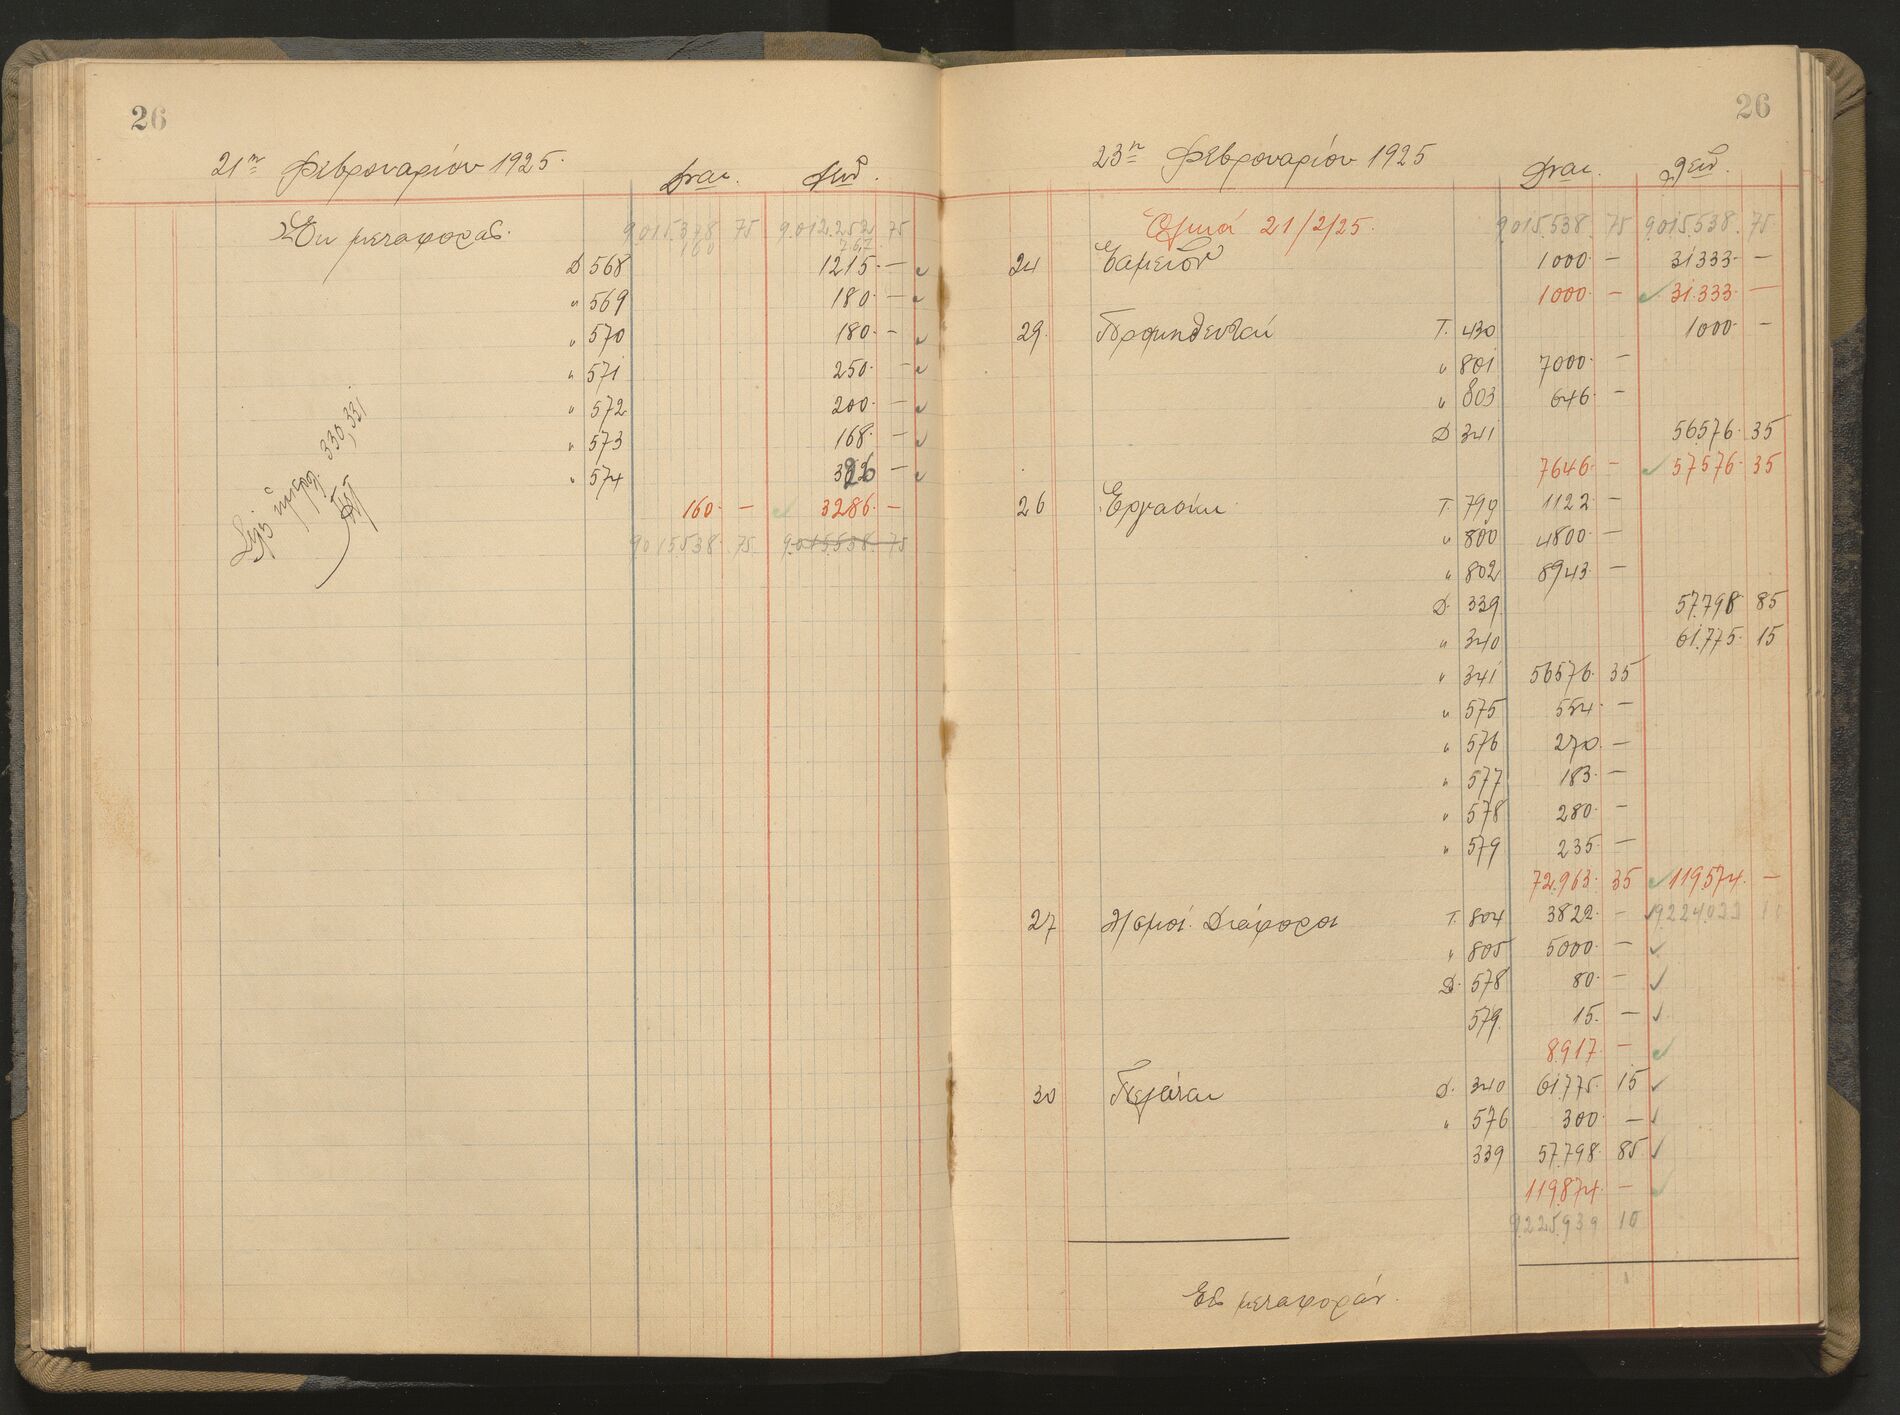 26
21η Φεβρουαρίου 1925.
Εκ μεταφοράς. 9.015.378 75 9.012.252 75
160 767
Δ 568 1215. —
" 569 180. —
" 570 180. —
" 571 250. —
" 572 200. —
" 573 168. —
" 574 326 —
160. — 3286. —
9015538. 75. 9.015.538. 75
330, 331
26
23η Φεβρουαρίου 1925
Ολικά 21/2/25. 9.015.538. 75 9.015.538. 75.
24 Ταμείον 1000. — 31333. —
1000. — 31.333. —
29. Προμηθευταί Τ. 430 1000. —
" 801 7000. —
" 803 646. —
Δ 341 56576. 35
7646. — 57576. 35
26 Εργασίαι Τ. 799 1122. —
" 800 4800. —
" 802 8943. —
Δ. 339 57.798 85
" 340 61.775. 15
" 341 56576. 35
" 575 554. —
" 576 270. —
" 577 183. —
" 578 280. —
" 579 235. —
72.963. 35 119574. —
27 Λ/σμοί Διάφοροι Τ. 804 3822. — 9.224.022 10
" 805 5000. —
Δ. 578 80. —
579. 15. —
8917. —
30 Πελάται Δ. 340 61.775. 15
" 576 300. —
339 57.798. 85
119874. —
9.225.939 10
Εις μεταφοράν.